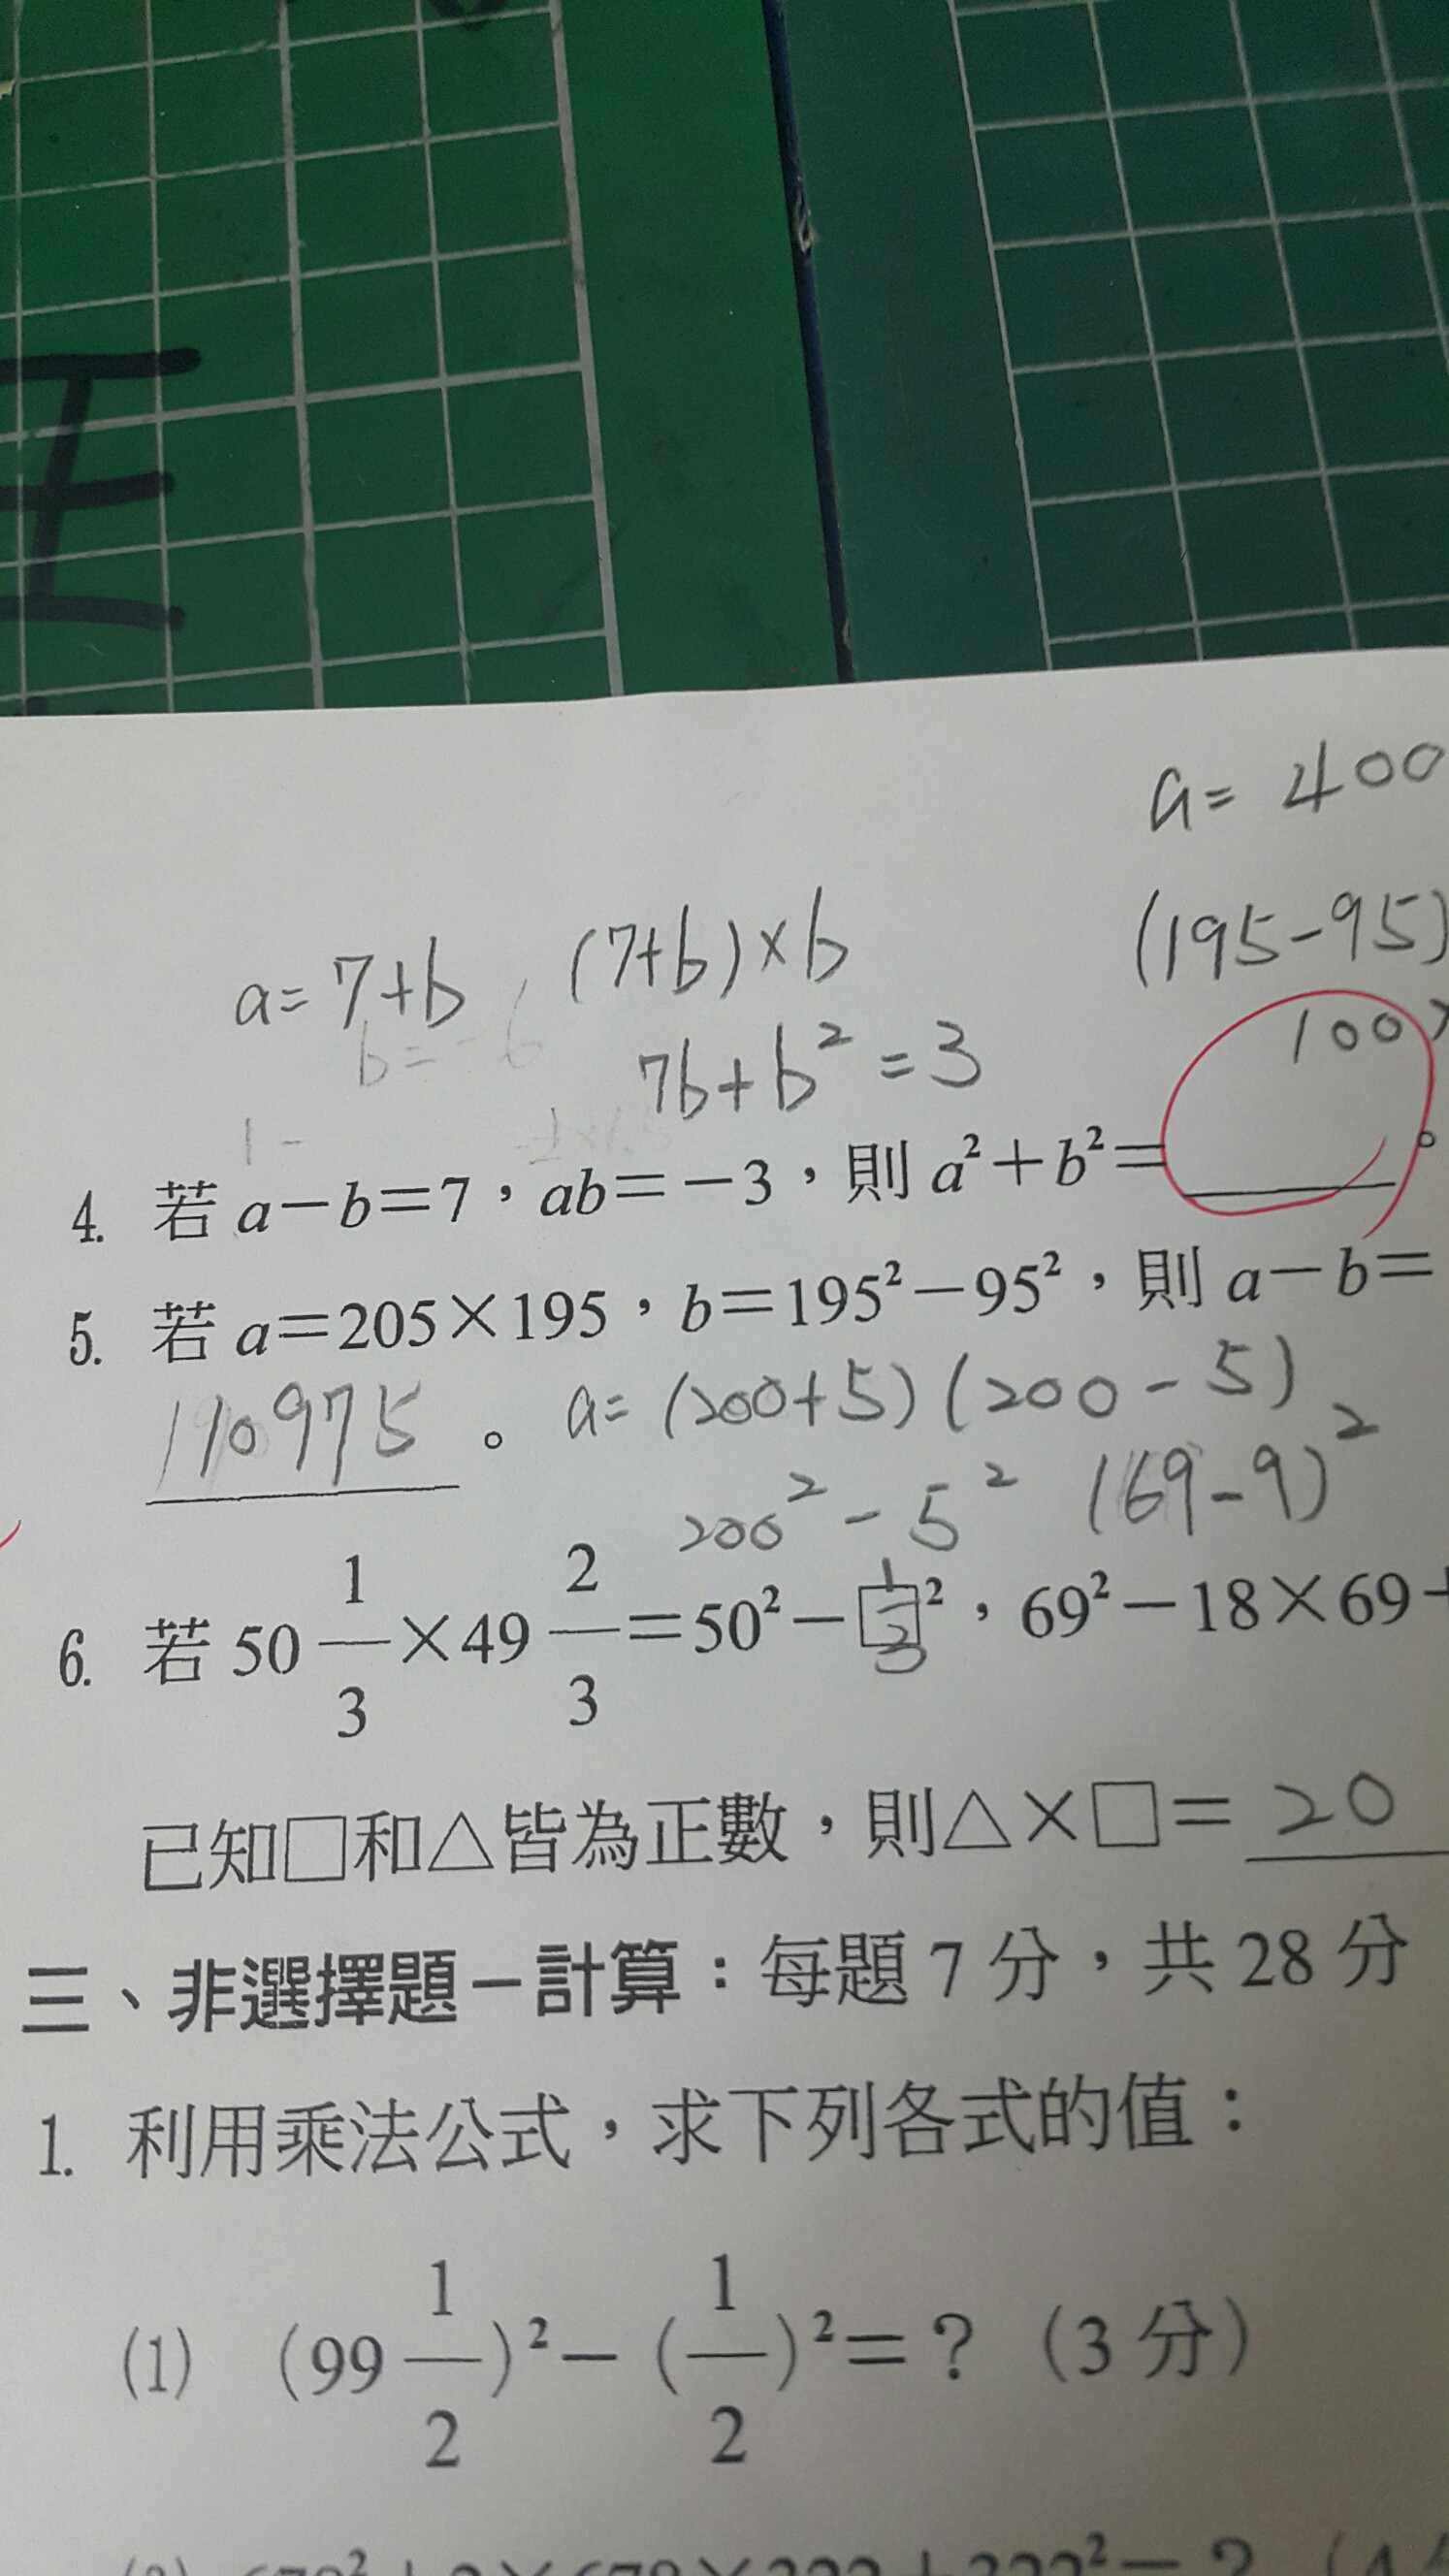 a= 400
(195-95)
a=7+b, (7+b)×b
100
b=-6
7b+b²=3
1-
4. 若 a－b＝7，ab＝－3，則 a²＋b²＝________。
5. 若 a＝205×195，b＝195²－95²，則 a－b＝
110975。 a=(200+5)(200-5)
200²-5² (69-9)²
6. 若 50 1/3 ×49 2/3 ＝50²－□²，69²－18×69
1/3
已知□和△皆為正數，則△×□＝ 20
三、非選擇題－計算：每題 7 分，共 28 分
1. 利用乘法公式，求下列各式的值：
(1) (99 1/2)²－(1/2)²＝？(3 分)